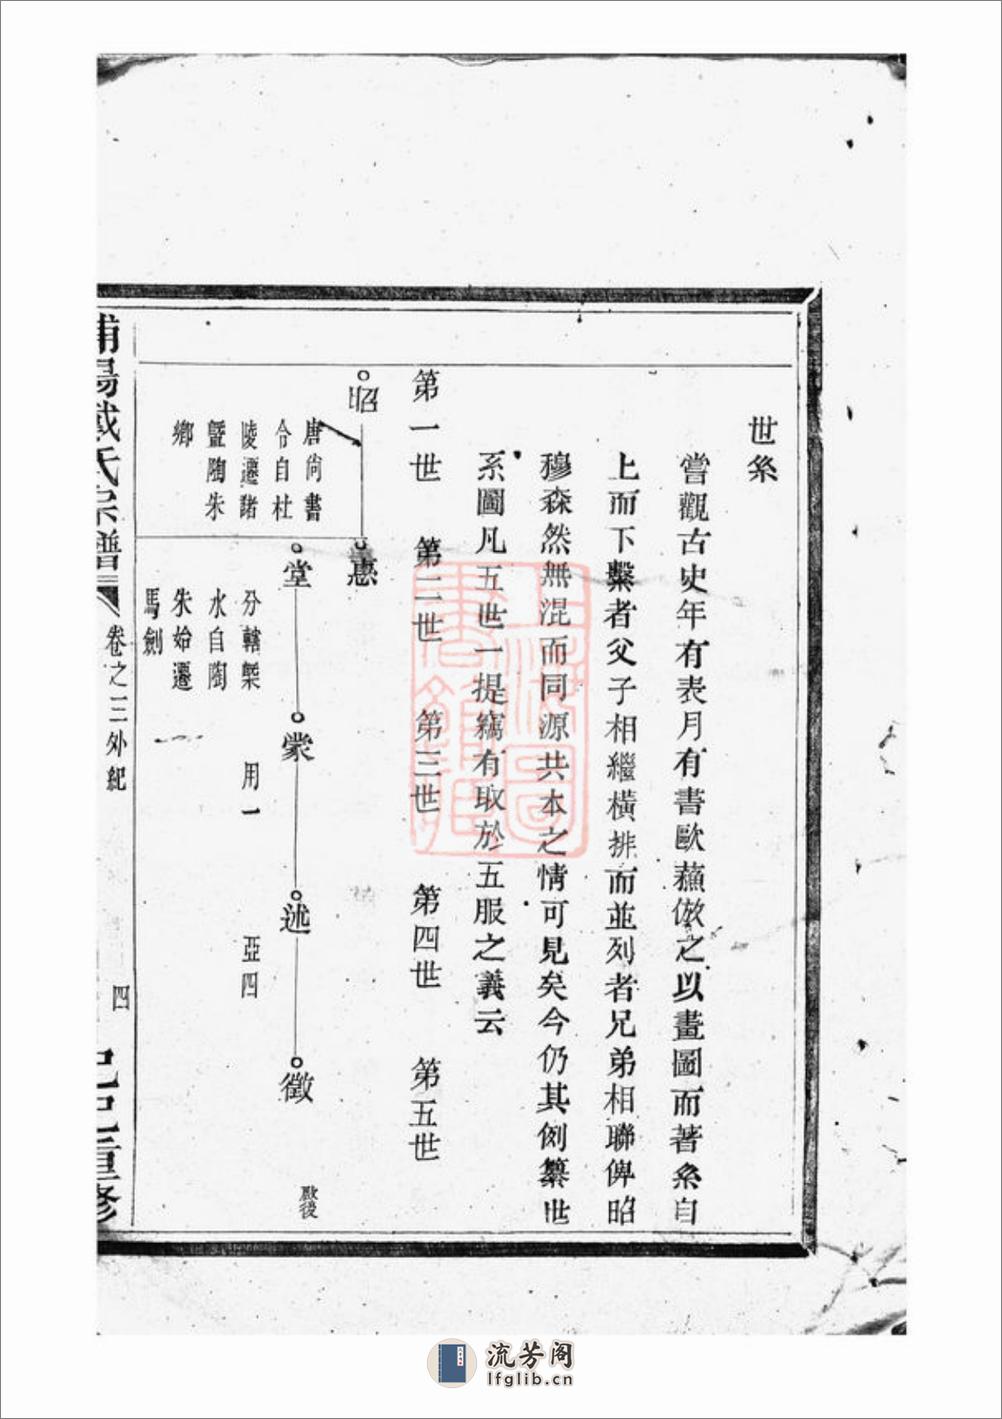 世系
嘗觀古史年有表月有書歐蘇倣之以畫圖而著系自
上而下繫者父子相繼橫排而並列者兄弟相聯俾昭
穆森然無混而同源共本之情可見矣今仍其例纂世
系圖凡五世一提竊有取於五服之義云
第一世 第二世 第三世 第四世 第五世
唐尙書
令自杜
陵遷諸
暨陶朱
鄉
憲
堂 蒙 述 徵
殿後
分轄槩
水自陶
朱始遷
馬劍
用一
亞四
浦陽戴氏宗譜 卷之三外紀 四 己巳重修
上海圖書館
流芳阁
lfglib.cn